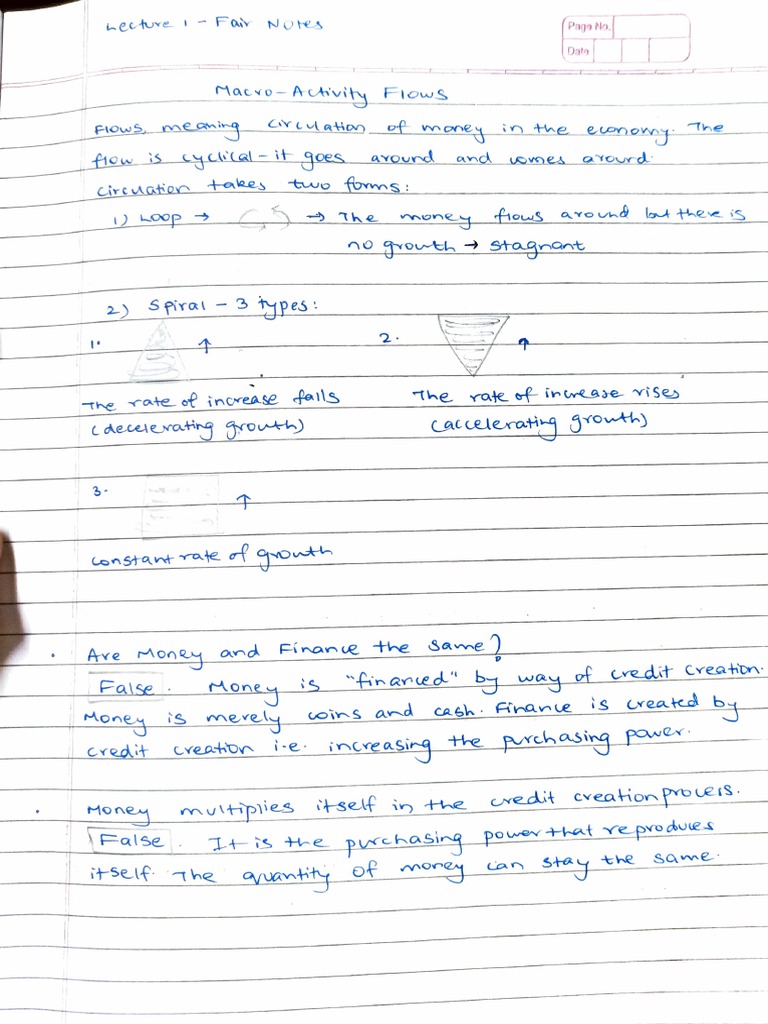 Lecture 1 - Fair Notes
Page No.
Date
Macro-Activity Flows
Flows, meaning circulation of money in the economy. The
flow is cyclical - it goes around and comes around.
Circulation takes two forms:
1) Loop → → The money flows around but there is
no growth → stagnant
2) Spiral - 3 types:
1. ↑ 2. ↑
The rate of increase falls The rate of increase rises
(decelerating growth) (accelerating growth)
3. ↑
constant rate of growth
. Are Money and Finance the same?
False. Money is "financed" by way of credit creation.
Money is merely coins and cash. Finance is created by
credit creation i.e. increasing the purchasing power.
. Money multiplies itself in the credit creation process.
False. It is the purchasing power that reproduces
itself. The quantity of money can stay the same.